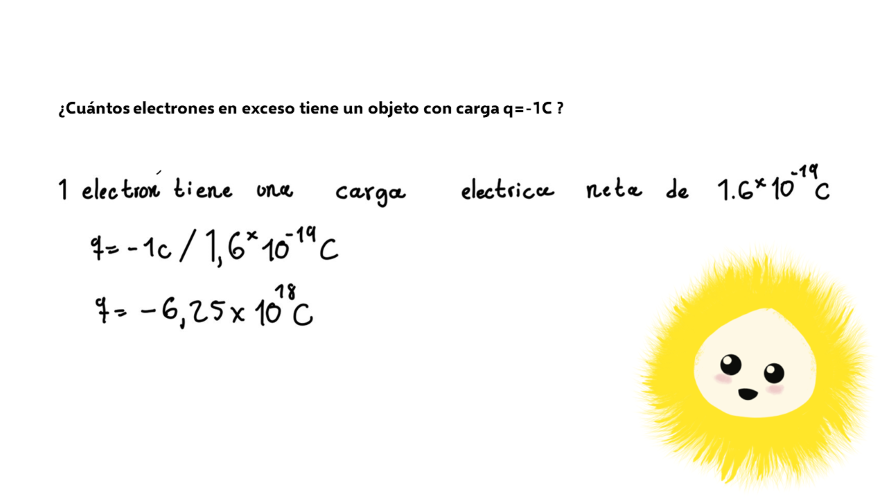 ¿Cuántos electrones en exceso tiene un objeto con carga q=-1C ?
1 electrón tiene una carga electrica neta de 1.6x10⁻¹⁹C
q= -1c / 1,6x10⁻¹⁹C
q= -6,25x10¹⁸C